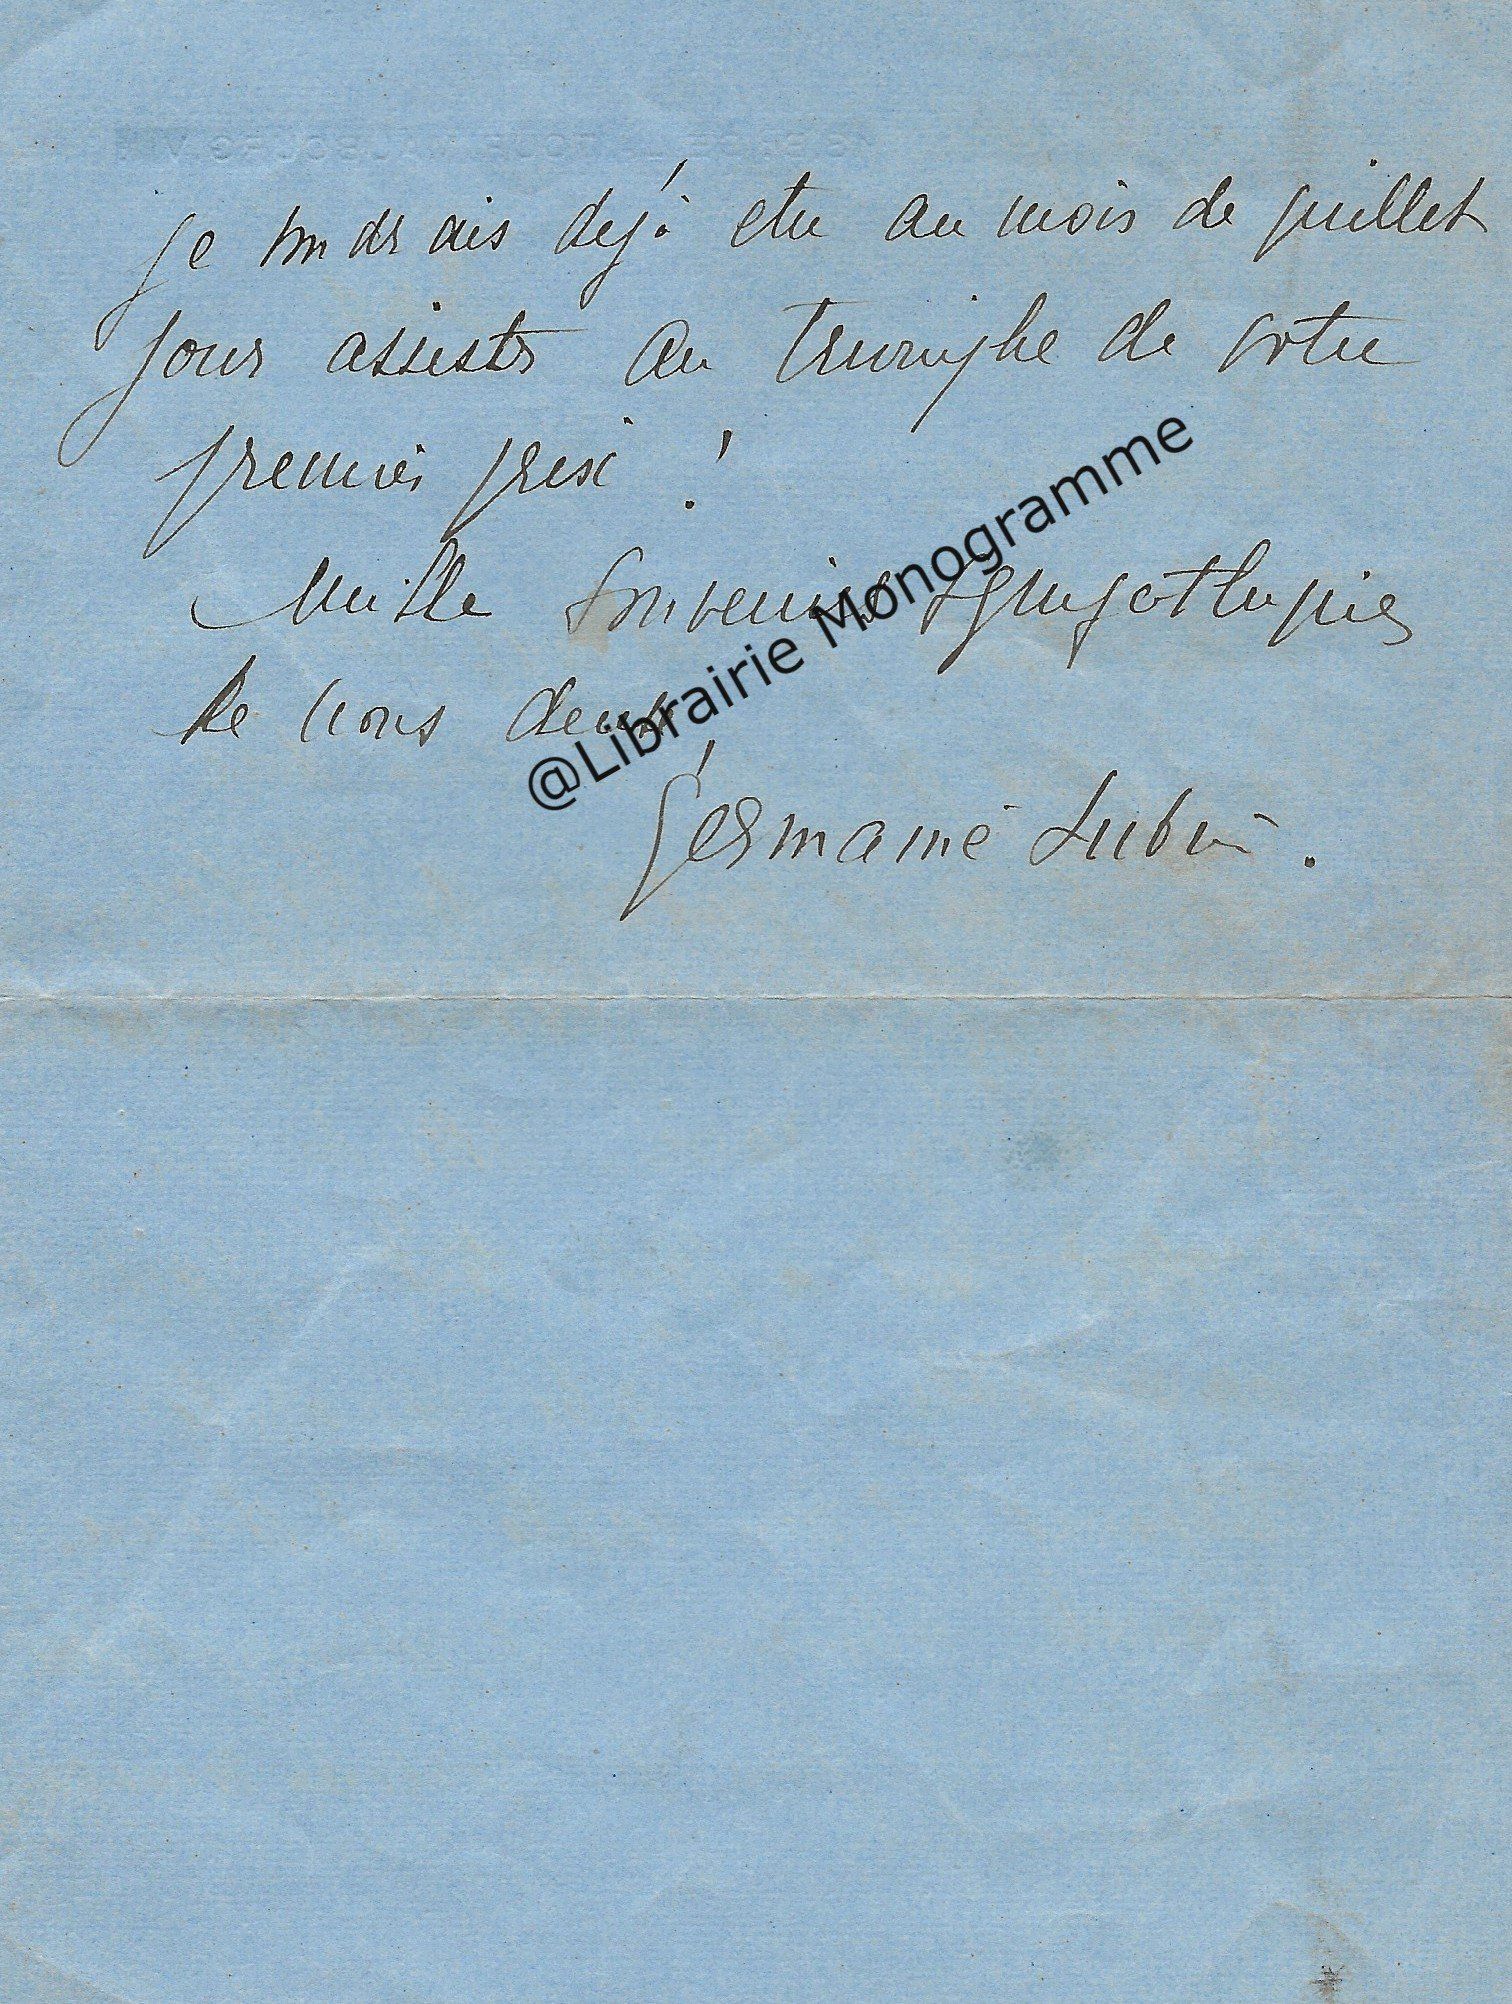 je voudrais déjà être au mois de juillet
pour assister au triomphe de votre
premier prix !
Mille souvenirs sympathiques
de nous deux
Germaine Lubin.
@Librairie Monogramme